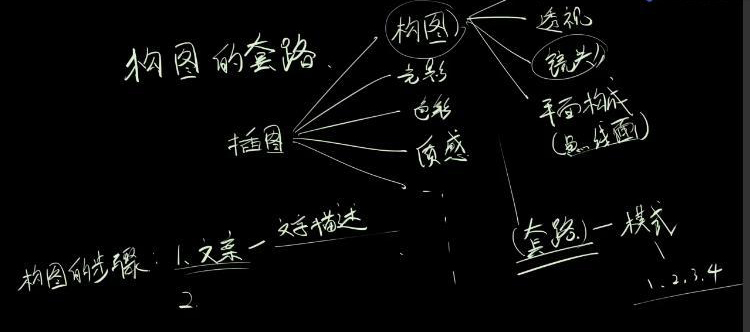 构图
透视
构图的套路.
镜头
光影
平面构成
色彩
(点.线面)
插图
质感
文字描述
(套路.) — 模式
构图的步骤: 1.文案 —
1.2.3.4
2.